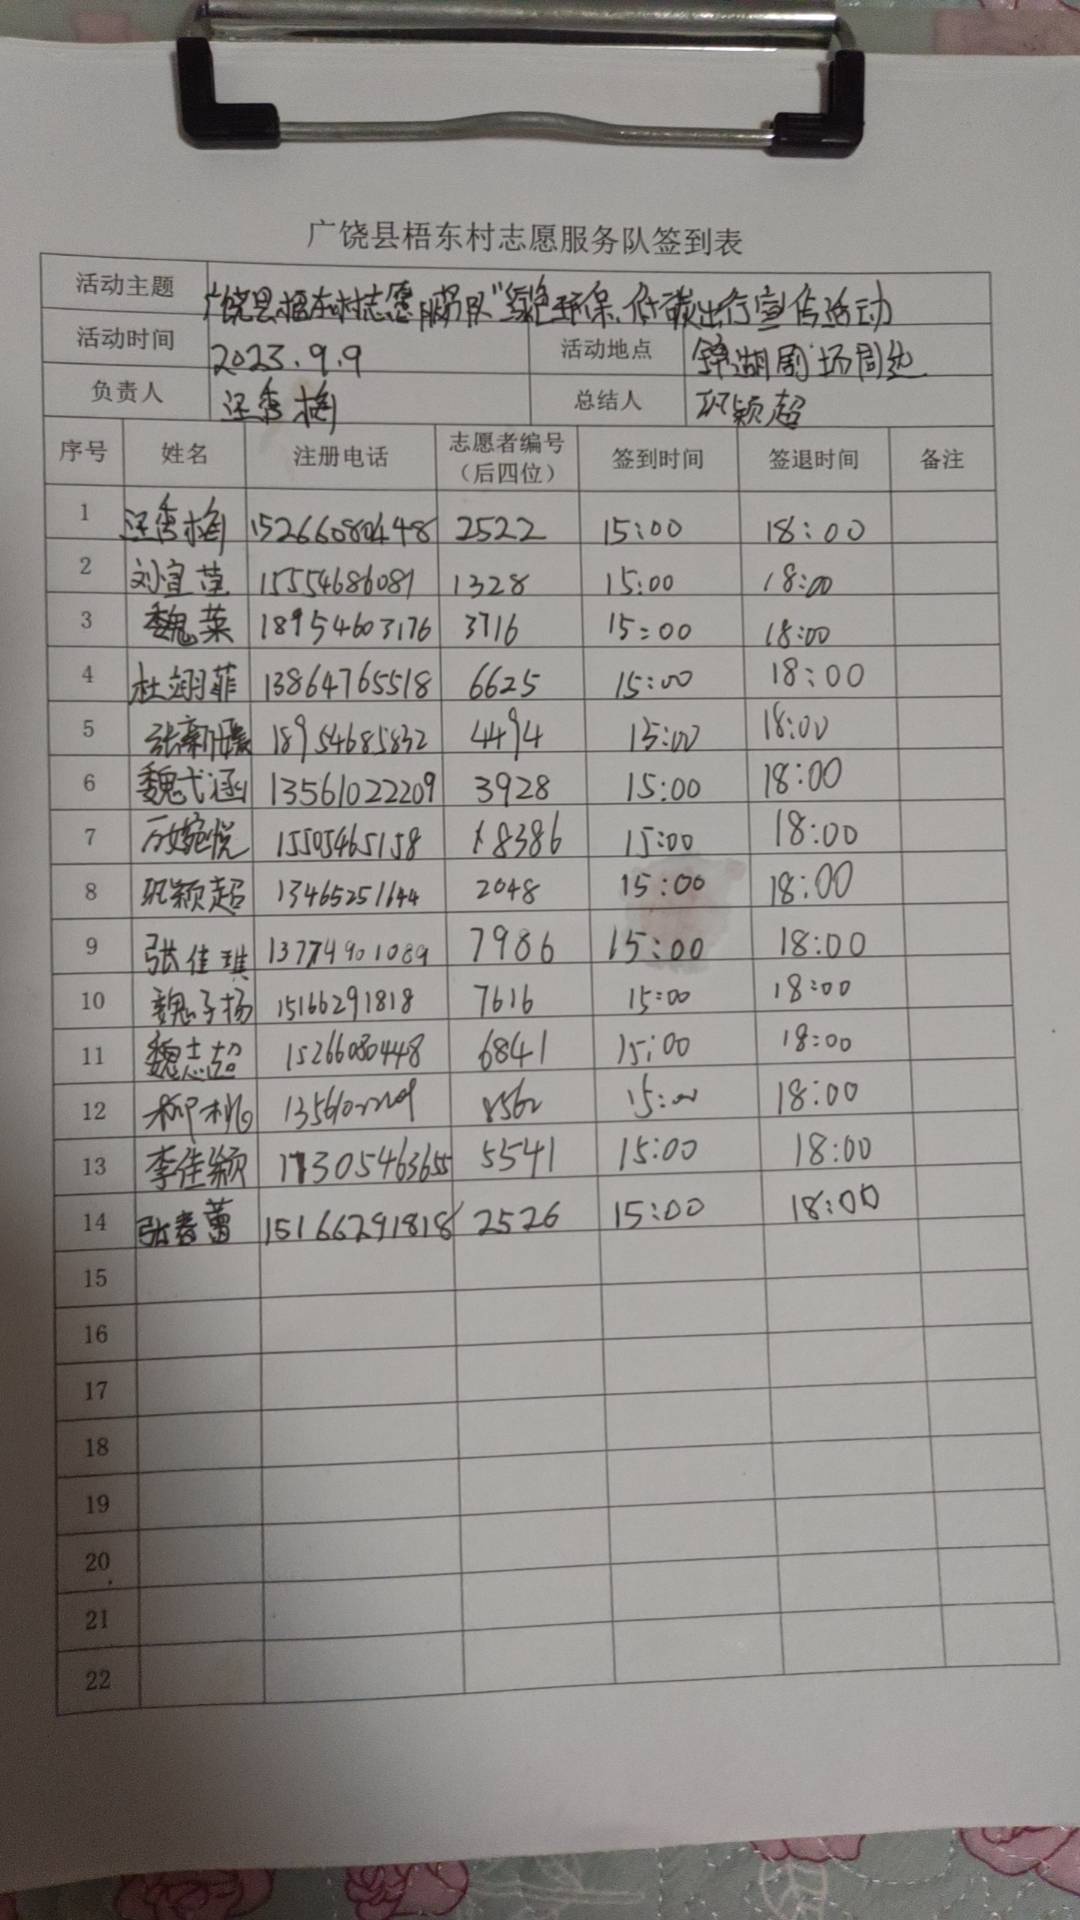 广饶县梧东村志愿服务队签到表
活动主题 广饶县梧东村志愿服务队"绿色环保、低碳出行宣传活动
活动时间 2023.9.9 活动地点 锦湖剧场周边
负责人 汪秀梅 总结人 巩颖超
序号 姓名 注册电话 志愿者编号（后四位） 签到时间 签退时间 备注
1 汪秀梅 15266080448 2522 15:00 18:00
2 刘宜萱 15554686081 1328 15:00 18:00
3 魏菜 18954603176 3716 15:00 18:00
4 杜翊菲 13864765518 6625 15:00 18:00
5 张新媛 18954685832 4494 15:00 18:00
6 魏弋涵 13561022209 3928 15:00 18:00
7 万婉悦 15505465158 8386 15:00 18:00
8 巩颖超 13465251644 2048 15:00 18:00
9 张佳琪 13774901089 7986 15:00 18:00
10 魏子扬 15166291818 7616 15:00 18:00
11 魏志超 15266080448 6841 15:00 18:00
12 柳桃 13561022209 8562 15:00 18:00
13 李佳颖 17305463655 5541 15:00 18:00
14 张春蕾 15166291818 2526 15:00 18:00
15
16
17
18
19
20
21
22